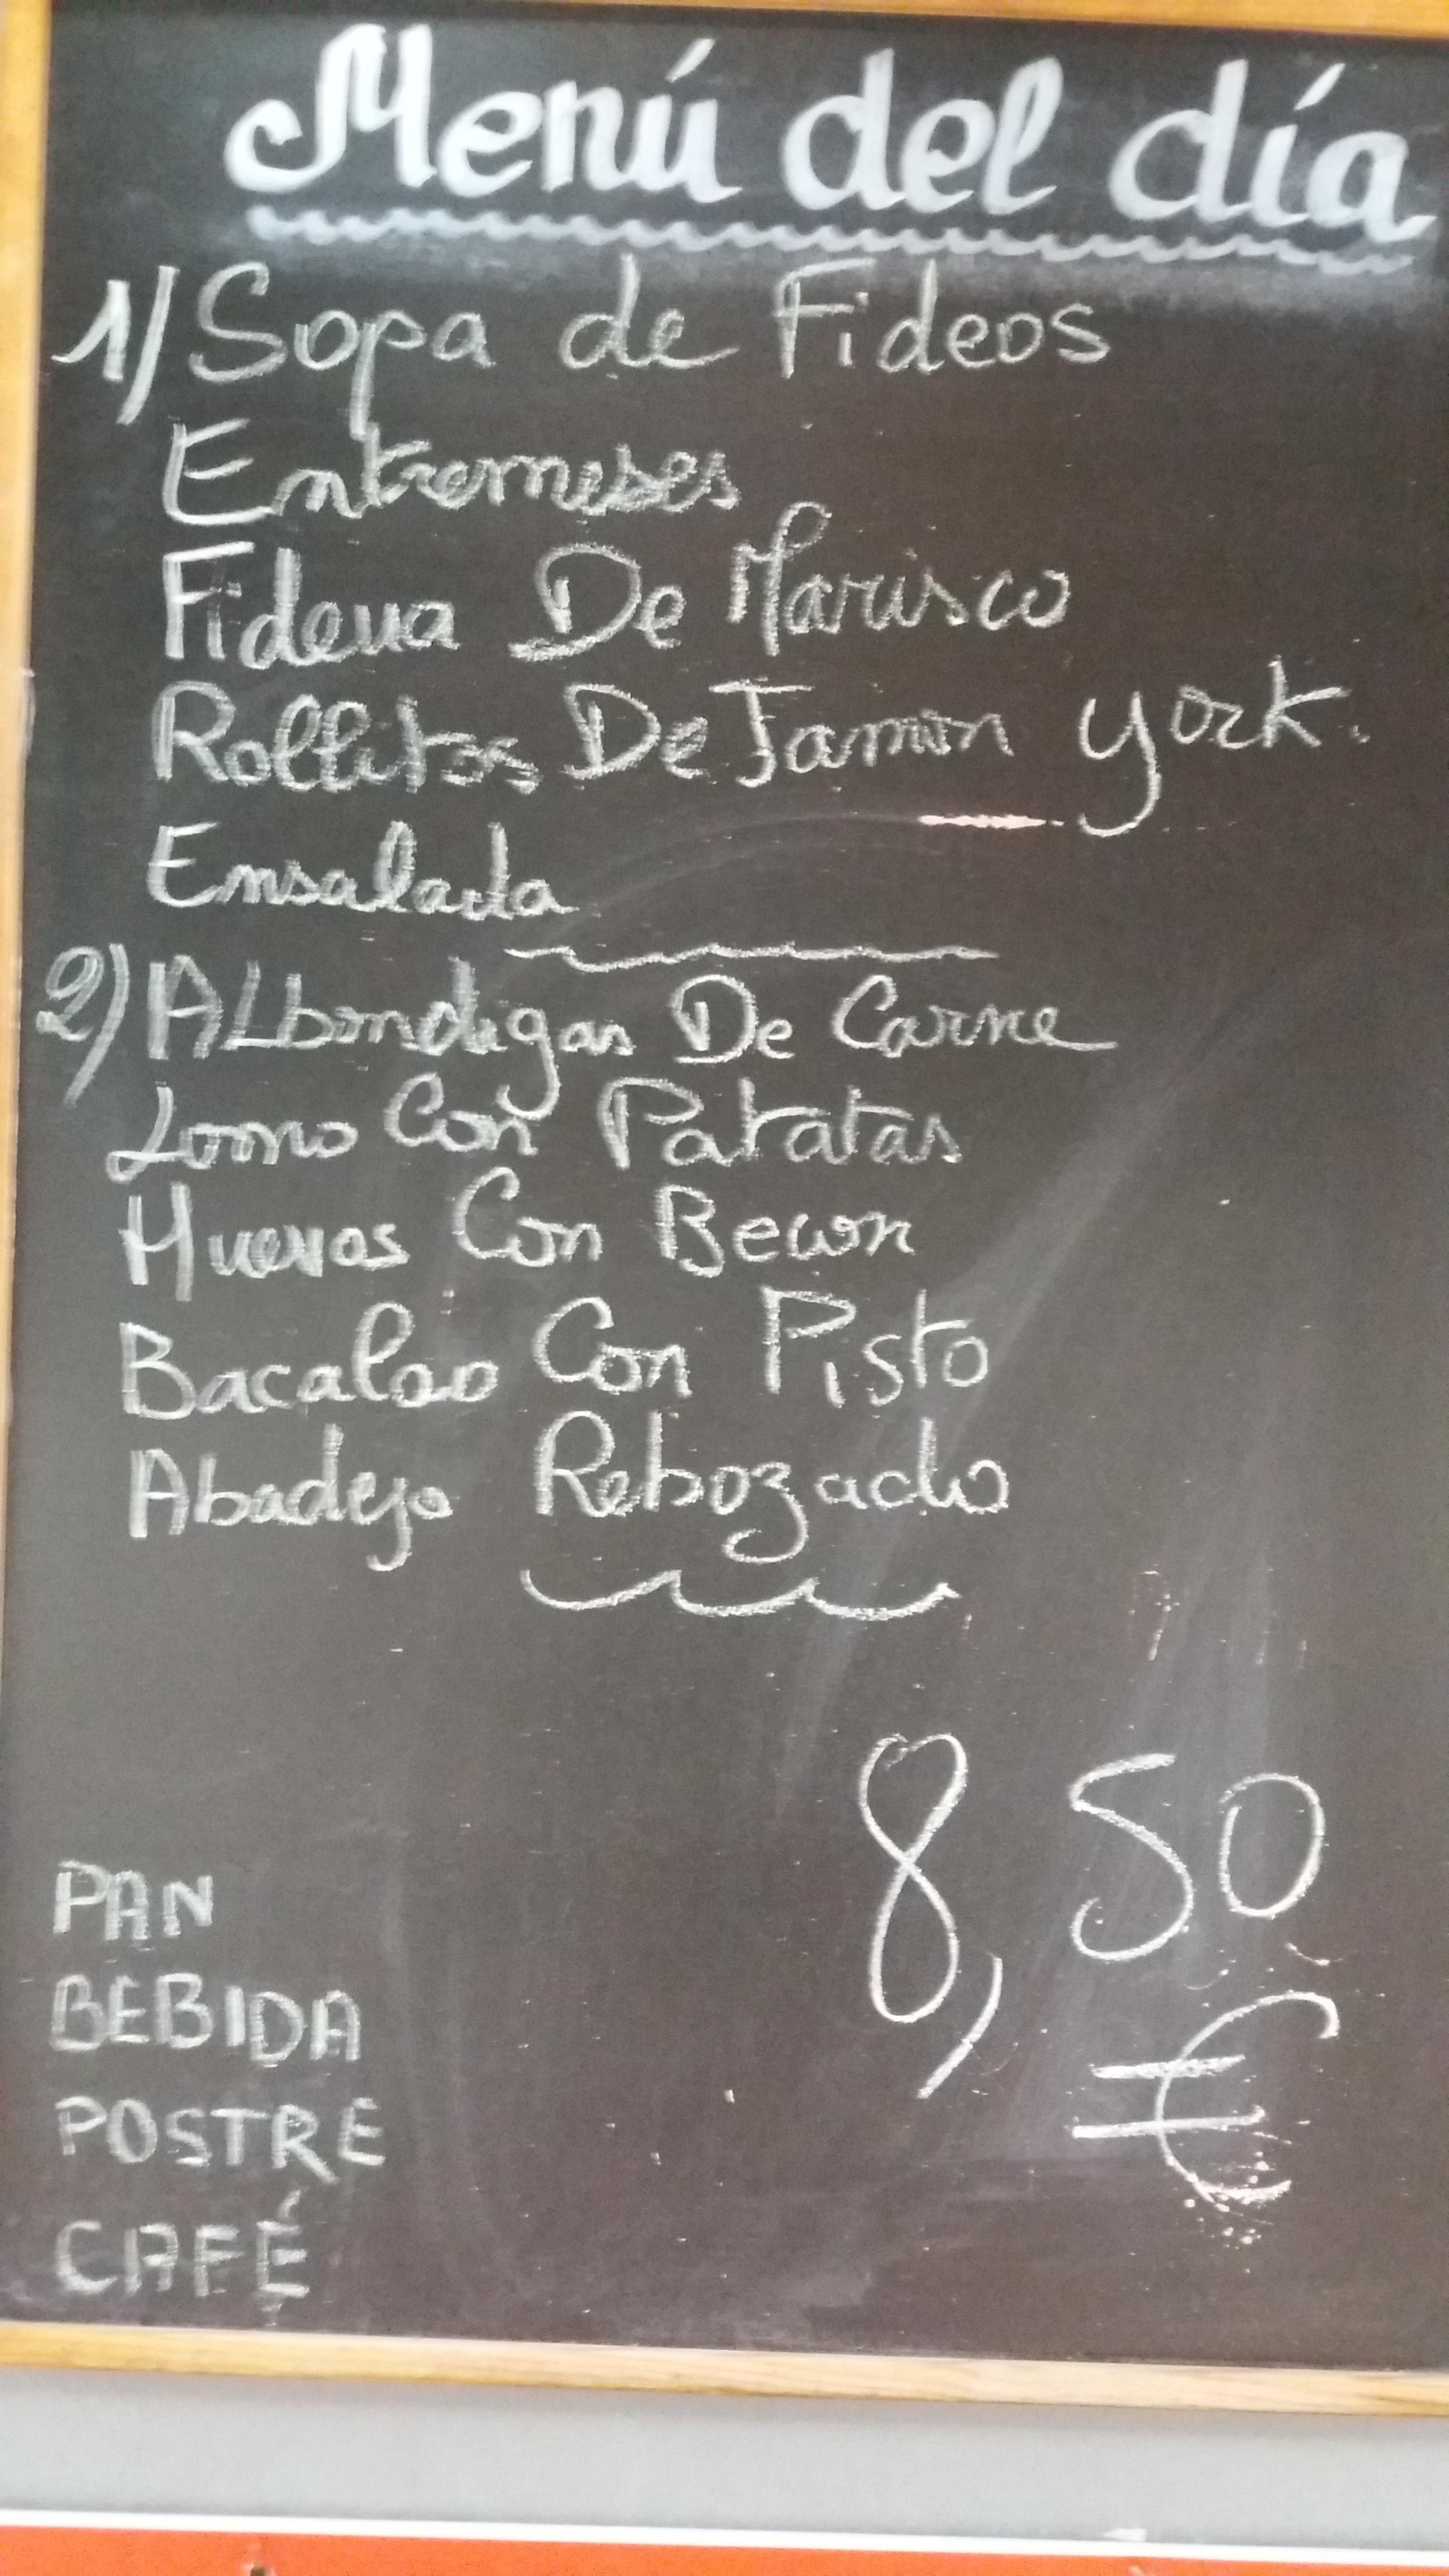 Menú del día
1) Sopa de Fideos
Entremeses
Fideua De Marisco
Rollitos De Jamon york.
Ensalada
2) ALbondigas De Carne
Lomo Con Patatas
Huevos Con Becon
Bacalao Con Pisto
Abadejo Rebozado
8,50
€
PAN
BEBIDA
POSTRE
CAFÉ